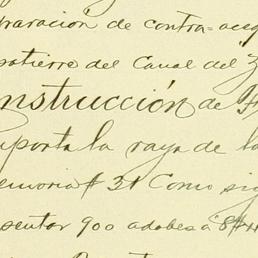 paración de contra=aceq
patierre del Canal del Z
nstrucción de F
mporta la raya de la
emoria # 31 Como sig
sentar 900 adobes á $